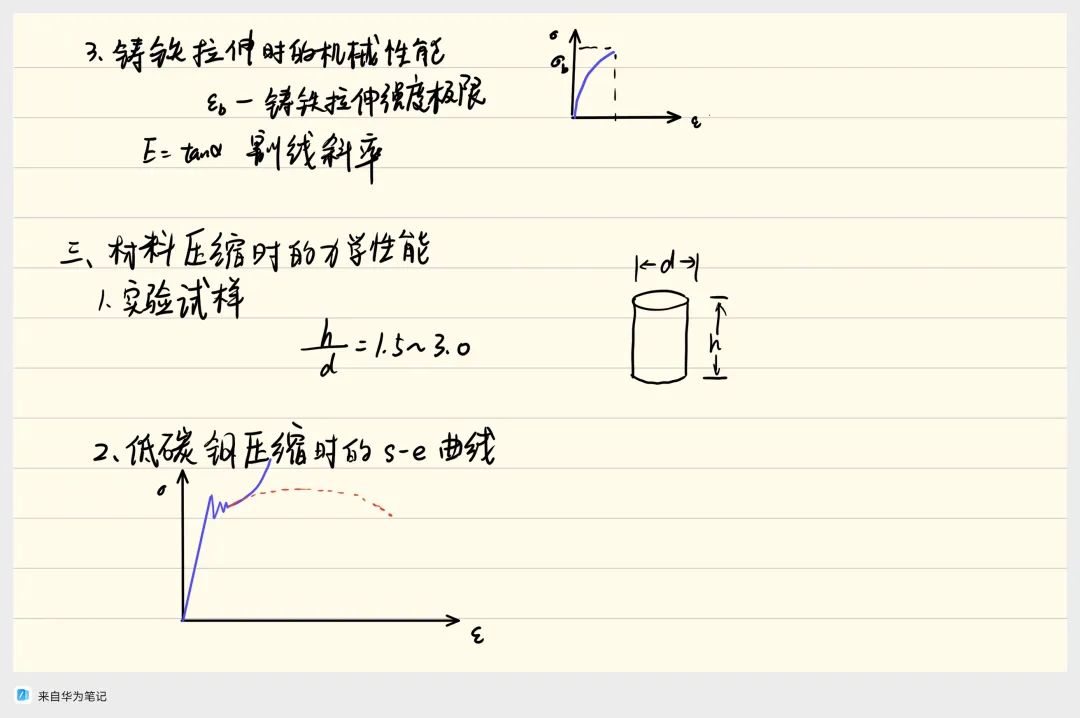 3. 铸铁拉伸时的机械性能
σ
σb
ε
εb — 铸铁拉伸强度极限
E = tanα 割线斜率
三、材料压缩时的力学性能
1. 实验试样
d
h
h/d = 1.5~3.0
2、低碳钢压缩时的 s-e 曲线
σ
ε
来自华为笔记